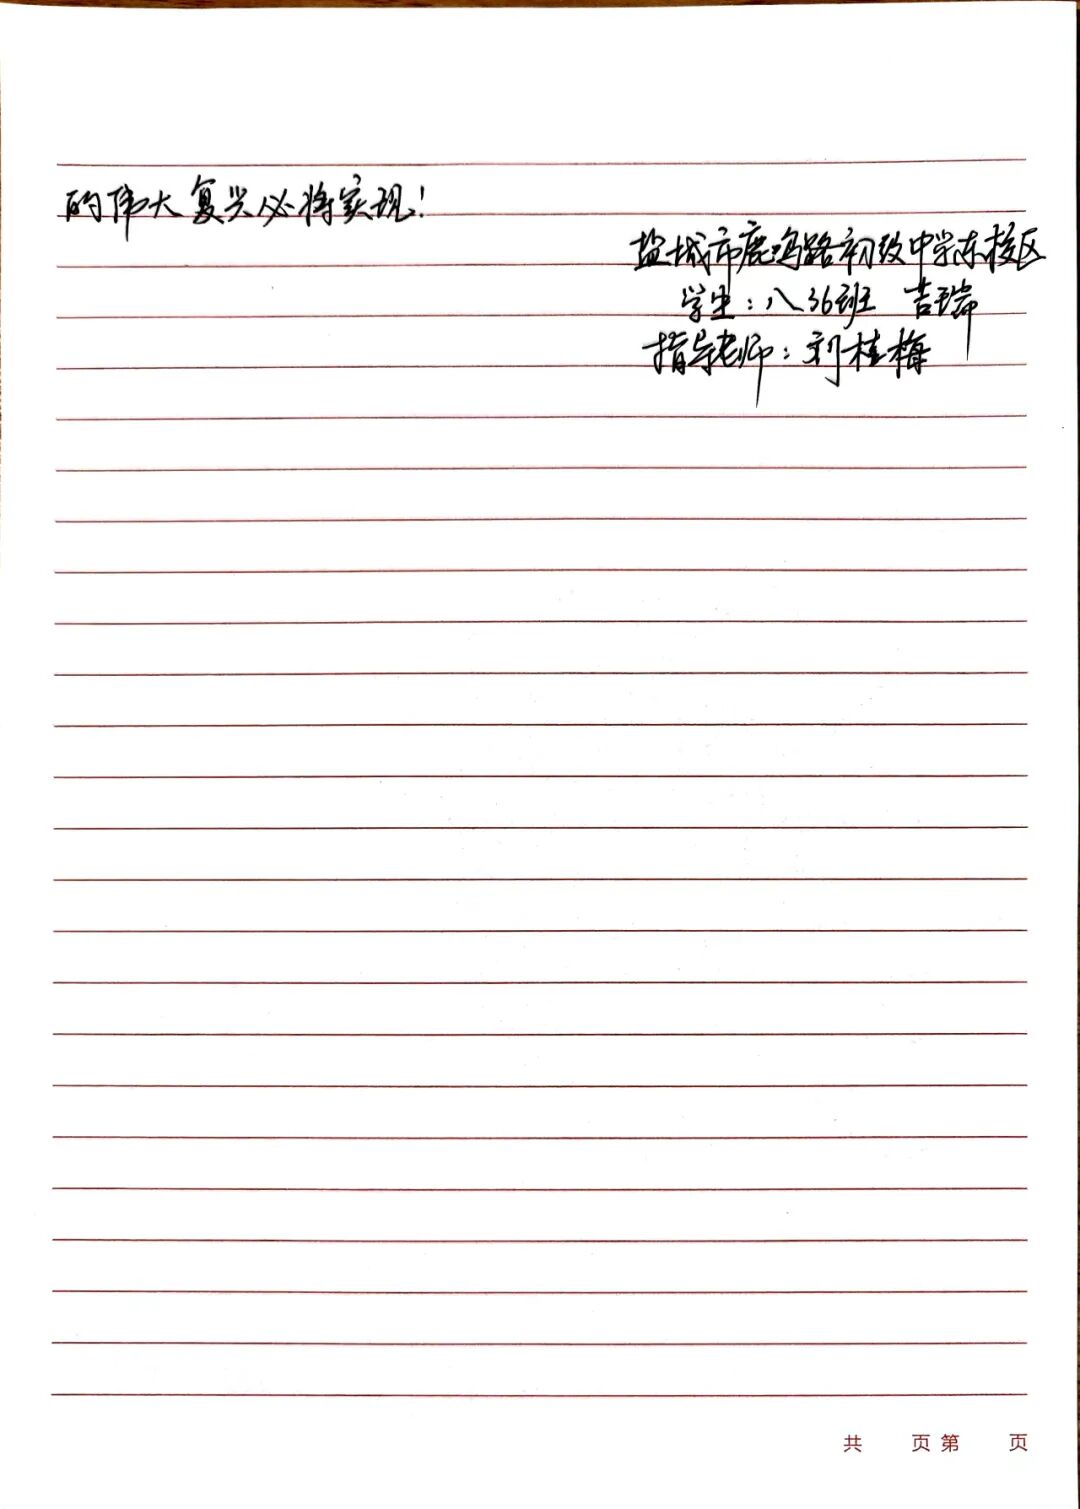 的伟大复兴必将实现！
盐城市鹿鸣路初级中学东校区
学生：八36班 吉瑞
指导老师：刘桂梅
共 页 第 页